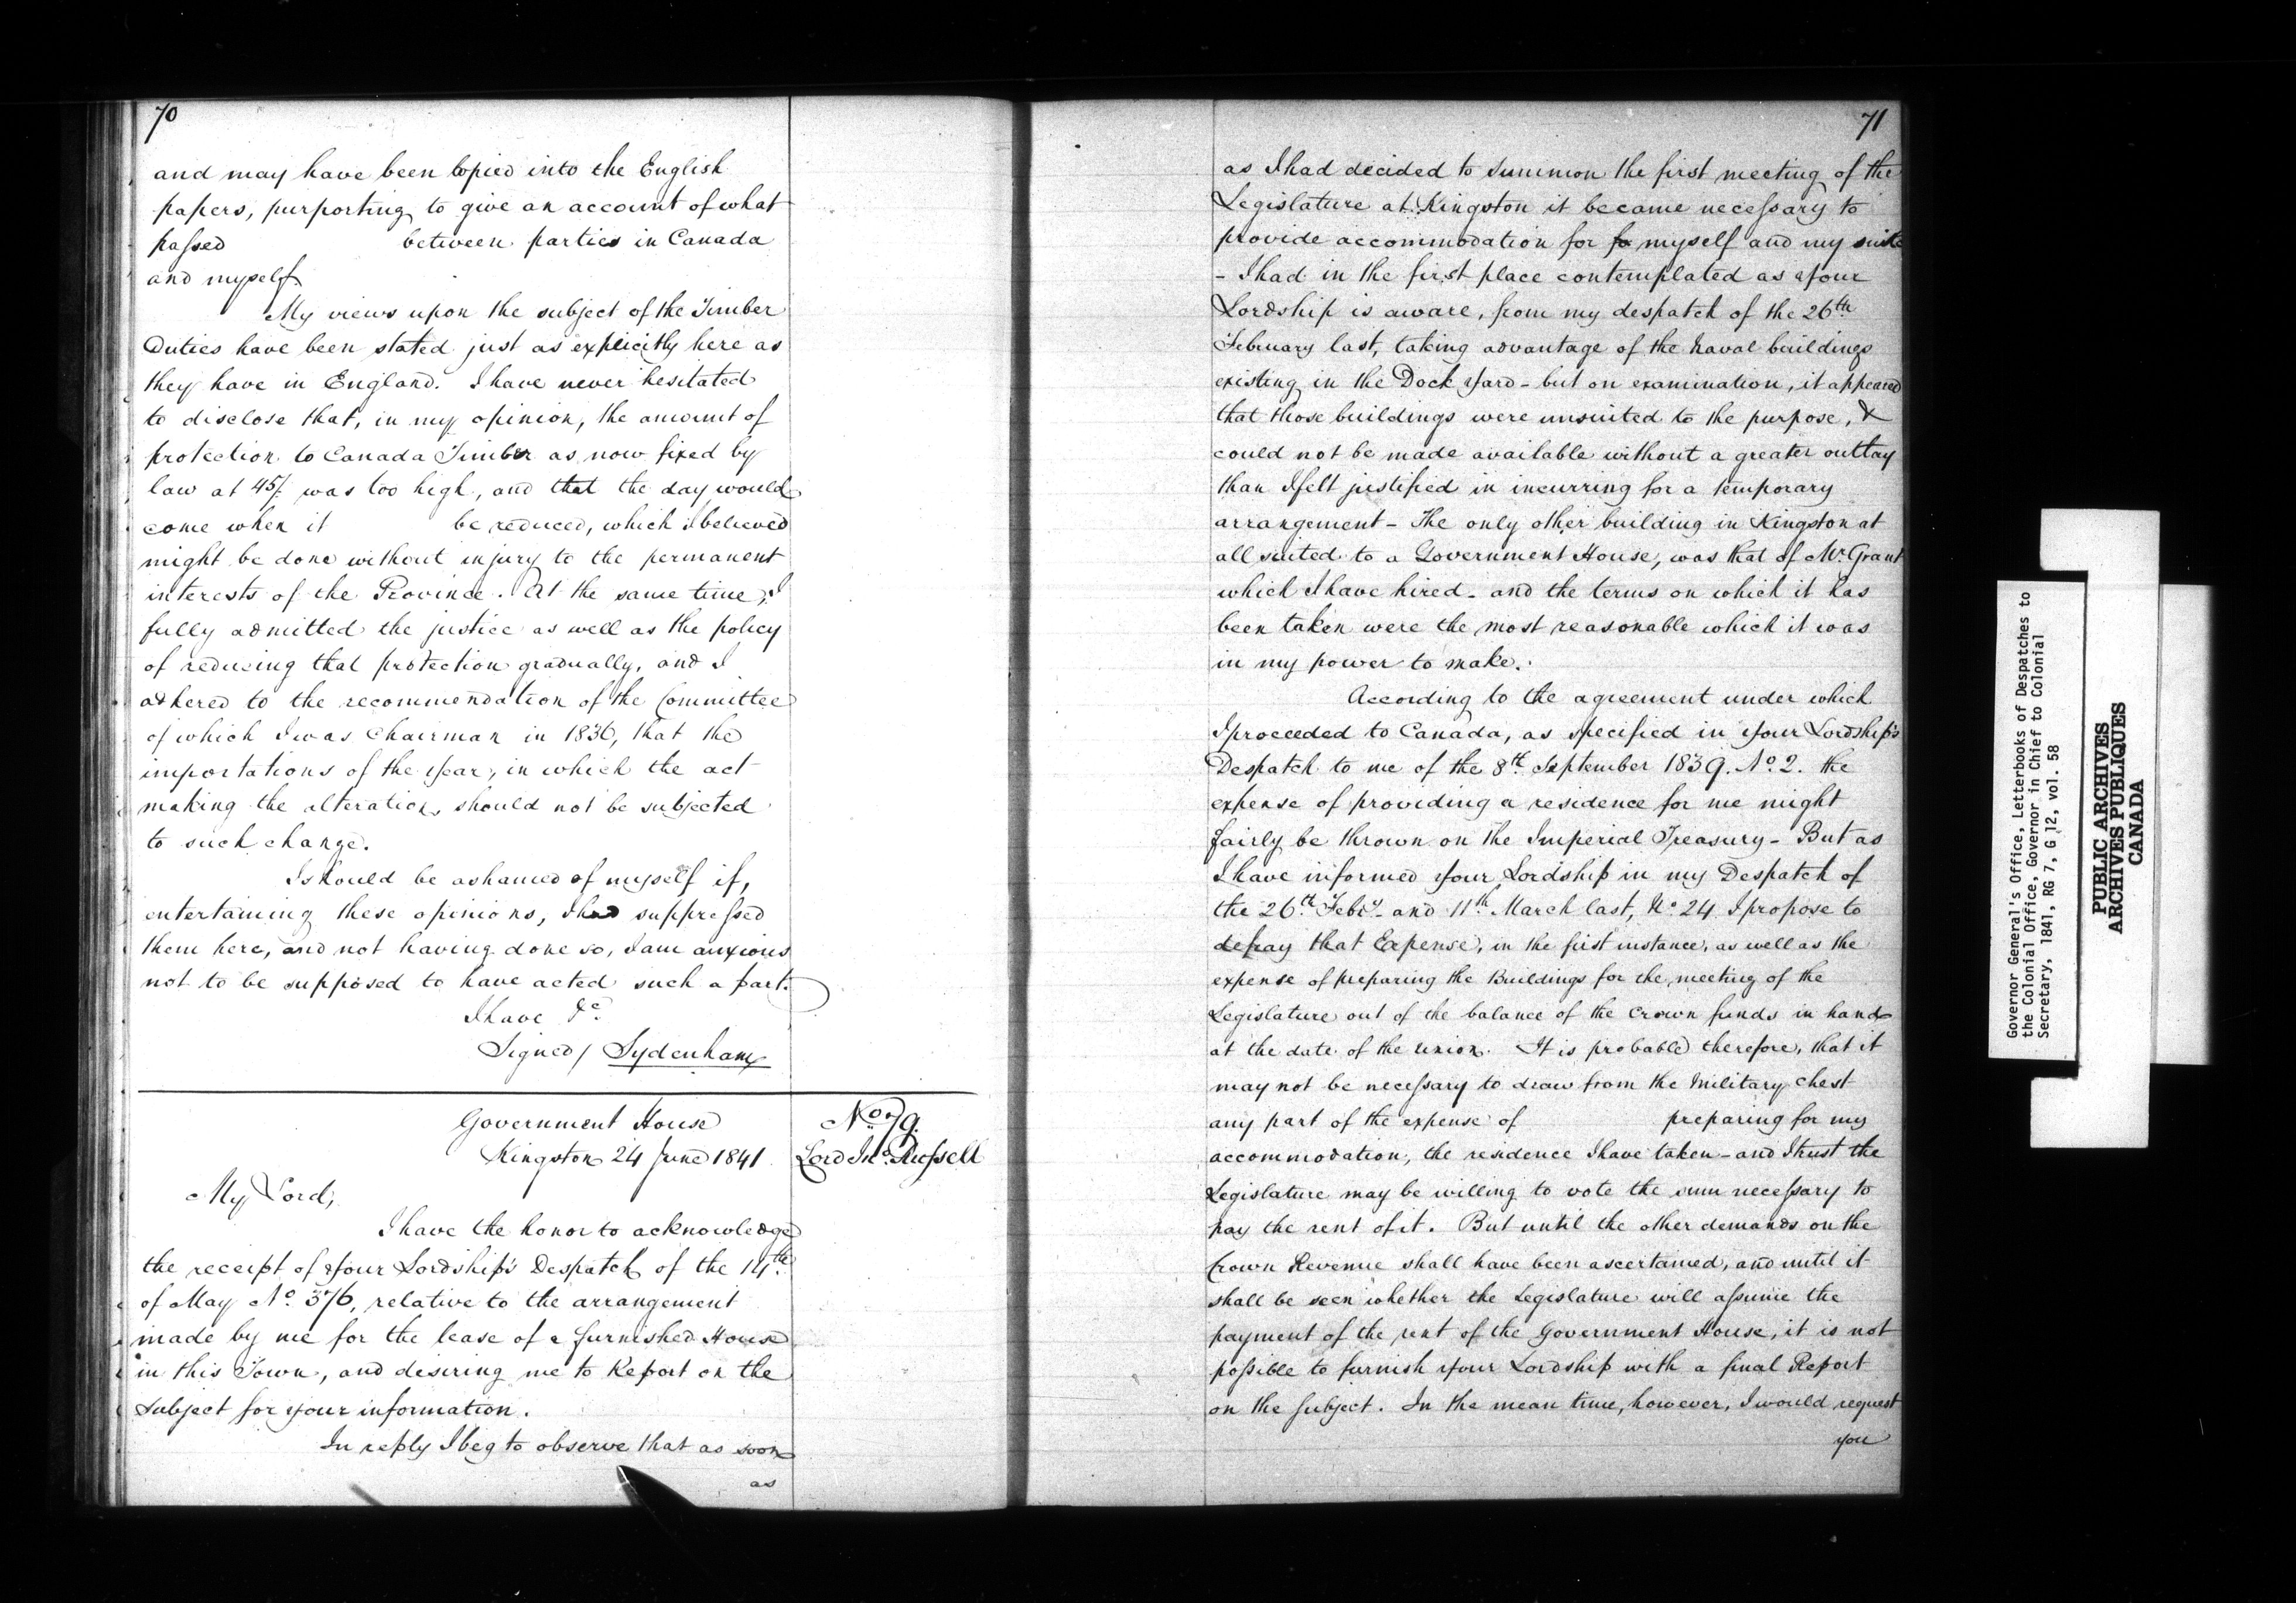 70
and may have been copied into the English
papers, purporting to give an account of what
passed between parties in Canada
and myself
My views upon the subject of the Timber
Duties have been stated just as explicitly here as
they have in England. I have never hesitated
to disclose that, in my opinion, the amount of
protection to Canada Timber as now fixed by
law at 45/. was too high, and that the day would
come when it be reduced, which I believed
might be done without injury to the permanent
interests of the Province. At the same time, I
fully admitted the justice as well as the policy
of reducing that protection gradually, and I
adhered to the recommendation of the Committee
of which I was Chairman in 1836, that the
importations of the Year, in which the act
making the alteration, should not be subjected
to such change.
I should be ashamed of myself if,
entertaining these opinions, I had suppressed
them here, and not having done so, I am anxious
not to be supposed to have acted such a part.
I have &c
Signed / Sydenham
Government House
Kingston 24 June 1841
No. 79.
Lord Jno. Russell
My Lord,
I have the honor to acknowledge
the receipt of Your Lordship's Despatch of the 14th
of May No. 376, relative to the arrangement
made by me for the lease of a furnished House
in this Town, and desiring me to Report on the
Subject for your information.
In reply I beg to observe that as soon
as
71
as I had decided to summon the first meeting of the
Legislature at Kingston it became necessary to
provide accommodation for fo myself and my suite
- I had in the first place contemplated as Your
Lordship is aware, from my despatch of the 26th
February last, taking advantage of the Naval buildings
existing in the Dock Yard - but on examination, it appeared
that those buildings were unsuited to the purpose, &
could not be made available without a greater outlay
than I felt justified in incurring for a temporary
arrangement - The only other building in Kingston at
all suited to a Government House, was that of Mr. Grant
which I have hired - and the terms on which it has
been taken were the most reasonable which it was
in my power to make.
According to the agreement under which
I proceeded to Canada, as specified in Your Lordship's
Despatch to me of the 8th September 1839. No. 2. the
expense of providing a residence for me might
fairly be thrown on the Imperial Treasury - But as
I have informed Your Lordship in my Despatch of
the 26th Feby. and 11th March last, No. 24 I propose to
defray that Expense, in the first instance, as well as the
expense of preparing the Buildings for the meeting of the
Legislature out of the balance of the Crown funds in hand
at the date of the Union. It is probable therefore, that it
may not be necessary to draw from the Military Chest
any part of the expense of preparing for my
accommodation, the residence I have taken - and I trust the
Legislature may be willing to vote the sum necessary to
pay the rent of it. But until the other demands on the
Crown Revenue shall have been ascertained, and until it
shall be seen whether the Legislature will assume the
payment of the rent of the Government House, it is not
possible to furnish Your Lordship with a final Report
on the subject. In the mean time, however, I would request
you
Governor General's Office, Letterbooks of Despatches to
the Colonial Office, Governor in Chief to Colonial
Secretary, 1841, RG 7, G 12, vol. 58
PUBLIC ARCHIVES
ARCHIVES PUBLIQUES
CANADA